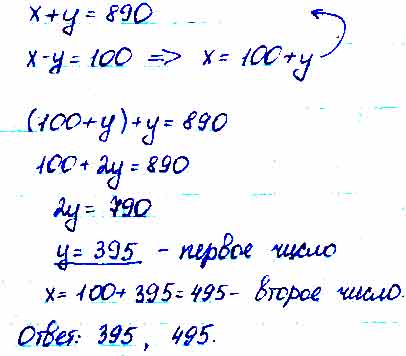 x+y=890
x-y=100 => x=100+y
(100+y)+y=890
100+2y=890
2y=790
y=395 - первое число
x=100+395=495- второе число.
Ответ: 395, 495.